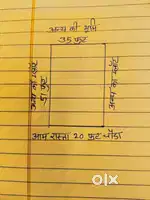 अन्य की भूमि
35 फुट
अन्य का प्लॉट
51 फुट
अन्य का प्लॉट
आम रास्ता 20 फुट चौड़ा
olx